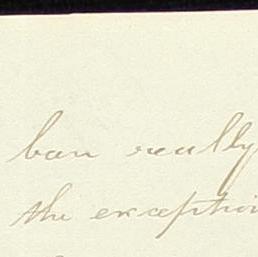 ban really
the exceptio